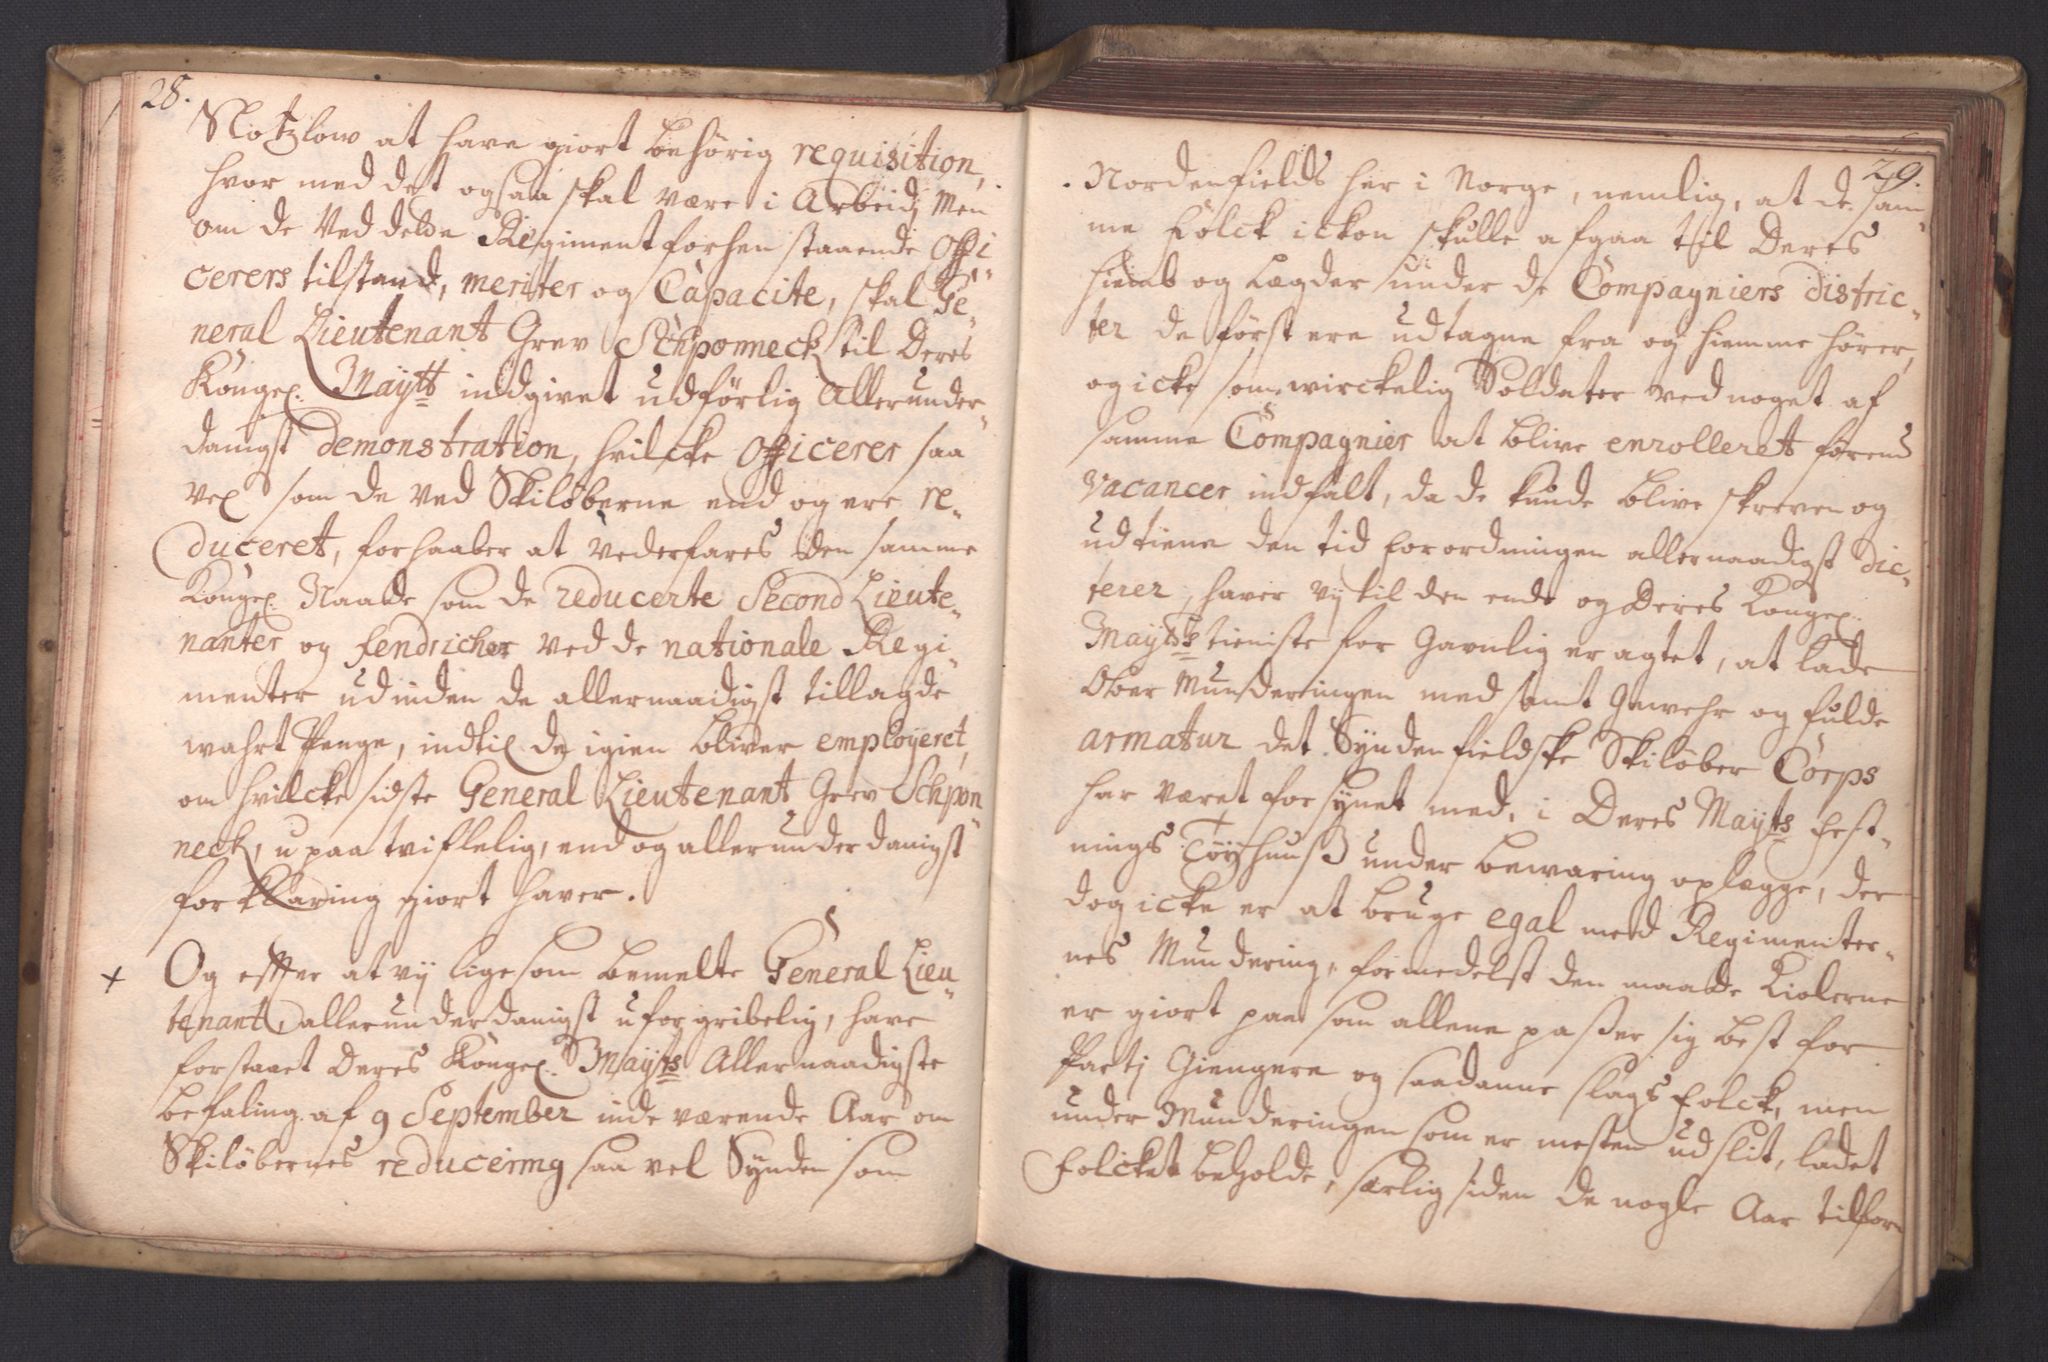 28.
Slotzlow at have giort behörig requisition,
hvor med det ogsaa skal være i Arbeid; Men
om de Ved dette Regiment forhen staaende Offi-
cerers tilstand, meriter og Capacite, skal Ge-
neral Lieutenant Grev Schponneck til Deres
Kongel. Maytt indgivet udförlig Allerunder-
danigst demonstration, hvilcke Officerer saa
vel som de ved Skilöberne end og ere re-
duceret, forhaaber at vederfares den samme
Kongel. Naade som de reducerte Second Lieute-
nanter og Fendricher ved de nationale Regi-
menter udinden de allernaadigst tillagde
wahrt Penge, indtil de igien bliver employeret,
om hvilcke sidste General Lieutenant Grev Schpon-
neck, u paa tviflelig, end og allerunderdanigst
forklaring giort haver.
+ Og efter at vij lige som bemelte General Lieu-
tenant, allerunderdanigst uforgribelig, have
forstaaet Deres Kongel. Mayts Allernaadigste
befaling af 9 September inde værende Aar om
Skilöbernes reducering saa vel Synden som
29.
Nordenfields her i Norge, nemlig, at de sam-
me Folck ickon skulle afgaa til Deres
hiemb og Lægder under de Compagniers distric-
ter de först ere udtagne fra og hiemme hörer,
og icke som wirckelig Soldater ved noget af
samme Compagnier at blive enrolleret förend
Vacancer indfalt, da de kunde blive skreven og
udtiene den tid Forordningen allernaadigst dic-
terer, haver vij til den ende og Deres Kongel.
Maytts tieniste for Gavnlig eragtet, at lade
Ober Munderingen med samt Gewehr og fulde
armatur det Syndenfieldske Skilöber Corps
har været forsynet med, i Deres Mayts Fest-
nings Töyhuuß under bewaring oplægge, der
dog icke er at bruge egal med Regimenter-
nes Mundering, formedelst den maade Kiolerne
er giort paa som allene paßer sig best for
Partj Giengere og saadanne slags Folck, men
under Munderingen som er mesten udslit, ladet
Folcket beholde, særlig siden de nogle Aar tilfor-